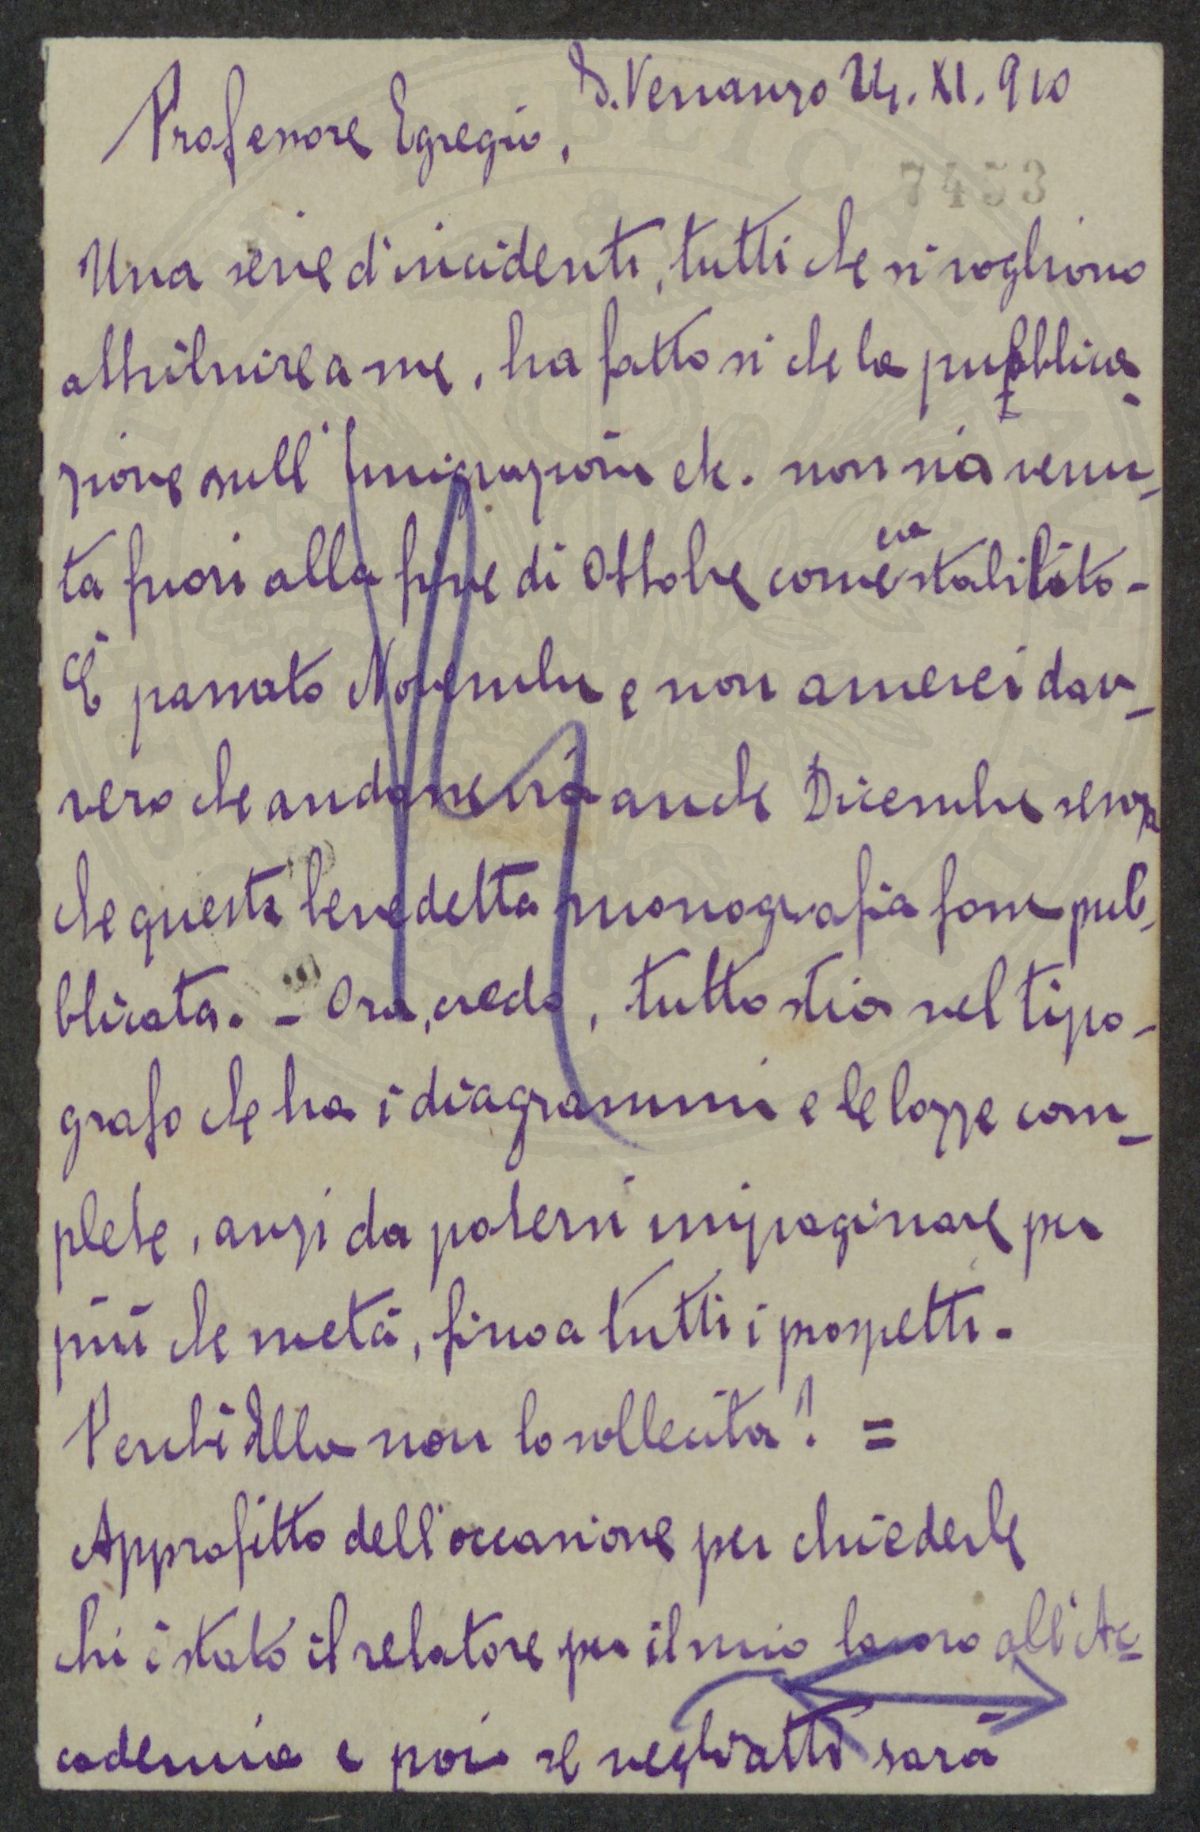 S. Venanzo 24. XI. 910
Professore Egregio,
7453
Una serie d'incidenti, tutti che si vogliono
attribuire a me, ha fatto si che la pubblica-
zione sull'Immigrazione etc. non sia venu-
ta fuori alla fine di Ottobre come era stabilito -
È passato Novembre e non amerei dav-
vero che andasse via anche Dicembre senza
che questa benedetta monografia fosse pub-
blicata. - Ora, credo, tutto stia nel tipo-
grafo che ha i diagrammi e le bozze com-
plete, anzi da potersi impaginare per
più che metà, fino a tutti i prospetti -
Perchè Ella non lo sollecita? =
Approfitto dell'occasione per chiederle
chi è stato il relatore per il mio lavoro all'Ac-
cademia e poi se negli atti sarà